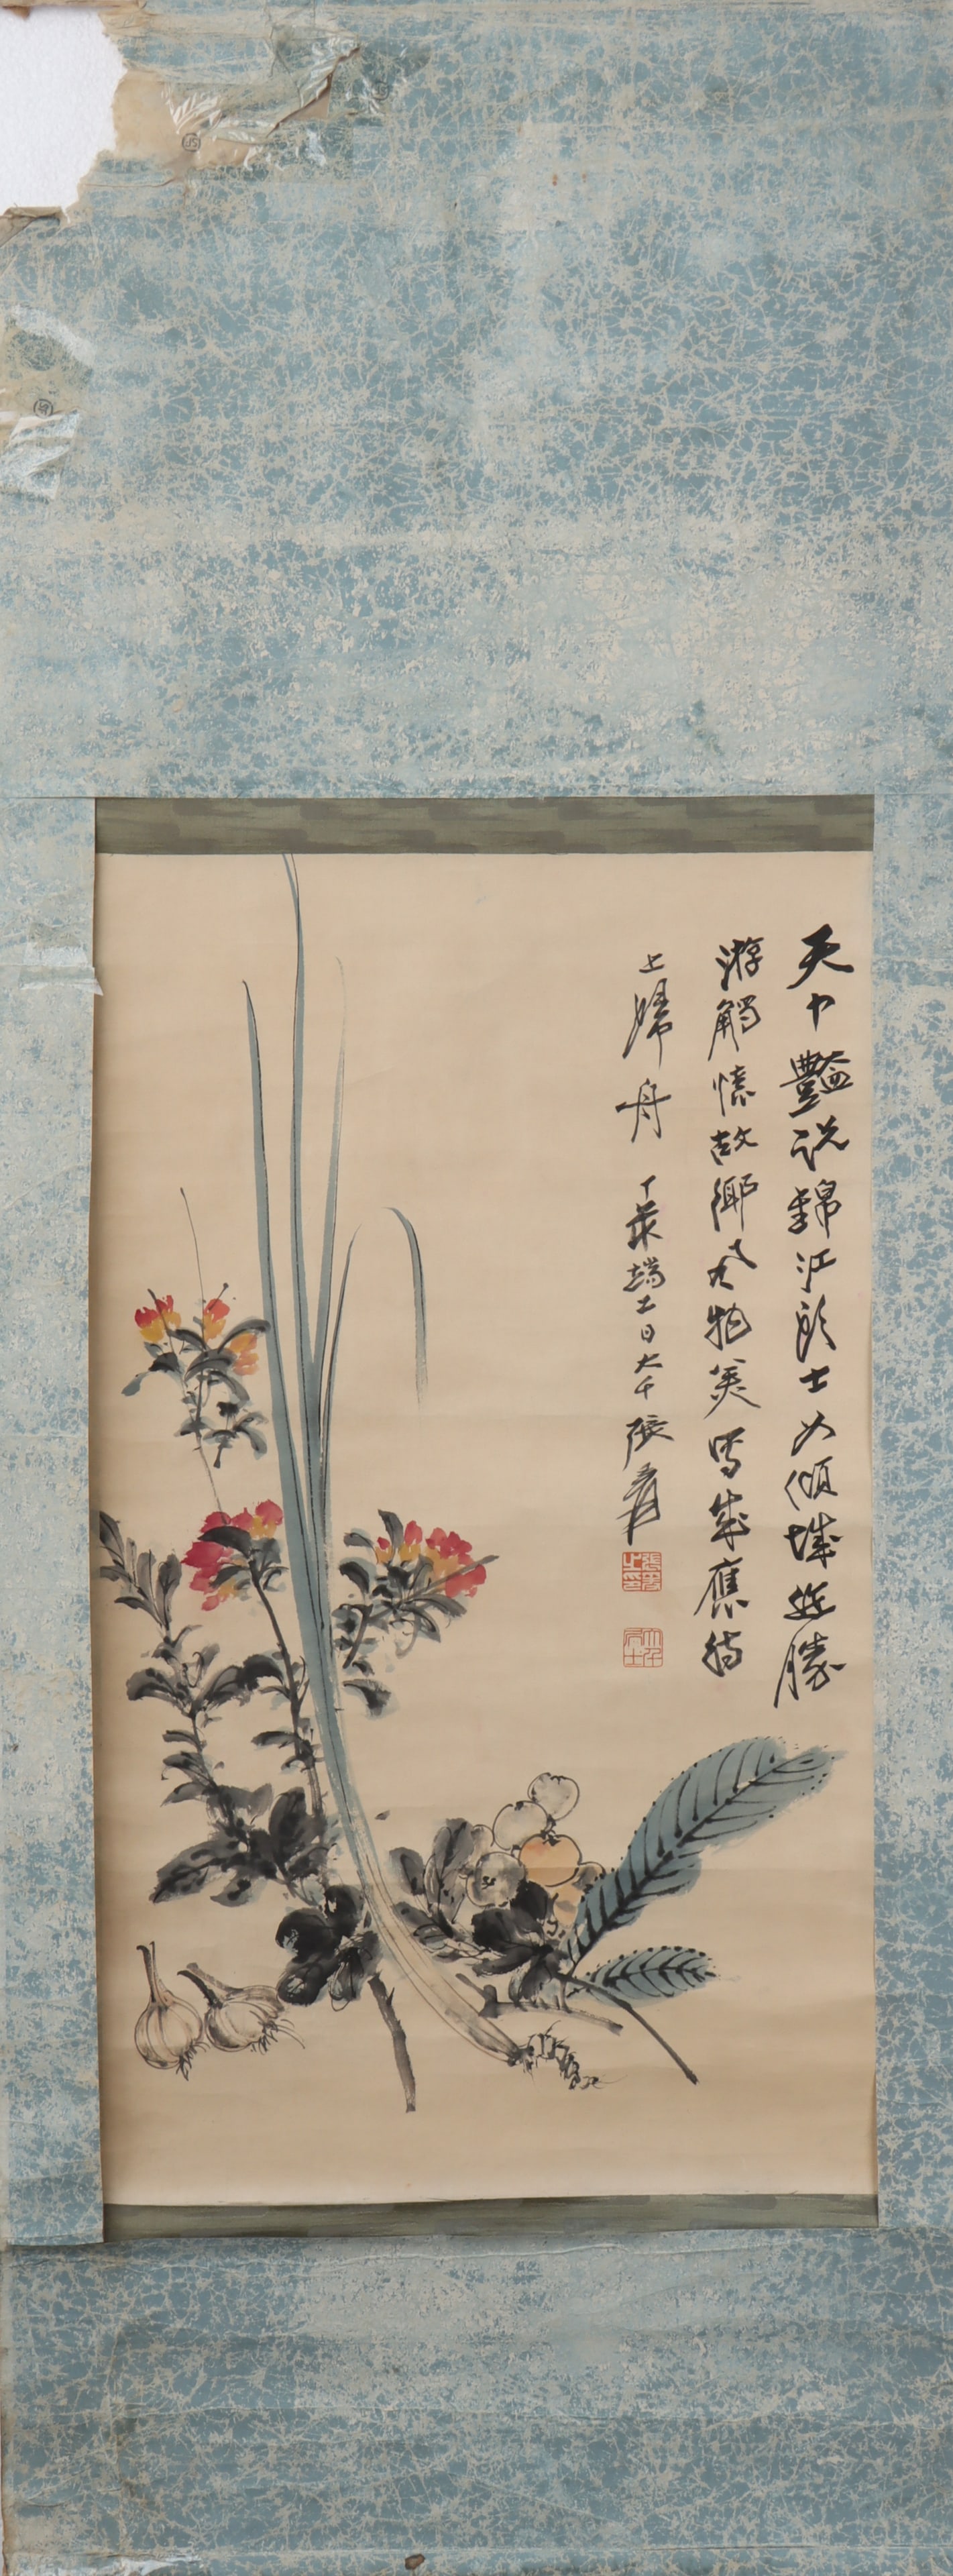 天中豔說錦江頭士女傾城逞勝
游觸憶故鄉風物美寫成應待
上歸舟 丁亥端士日大千張爰
張爰之印
大千居士